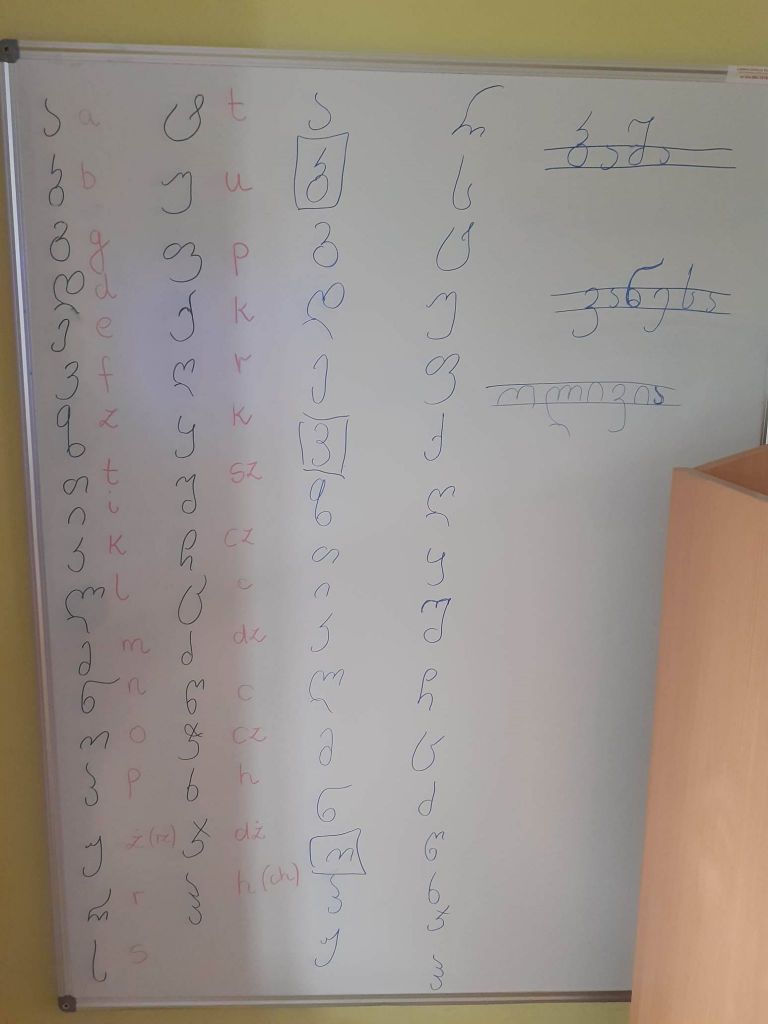 ა a
ბ b
გ g
დ d
ე e
ვ f
ზ z
თ t
ი i
კ k
ლ l
მ m
ნ n
ო o
პ p
ჟ ż (rz)
რ r
ს s
ტ t
უ u
ფ p
ქ k
ღ r
ყ k
შ sz
ჩ cz
ც c
ძ dz
წ c
ჭ cz
ხ h
ჯ dż
ჰ h (ch)
ა
ბ
გ
დ
ე
ვ
ზ
თ
ი
კ
ლ
მ
ნ
ო
პ
ჟ
რ
ს
ტ
უ
ფ
ქ
ღ
ყ
შ
ჩ
ც
ძ
წ
ხ
ჯ
ჰ
ბაშა
ვანესა
ოლივია